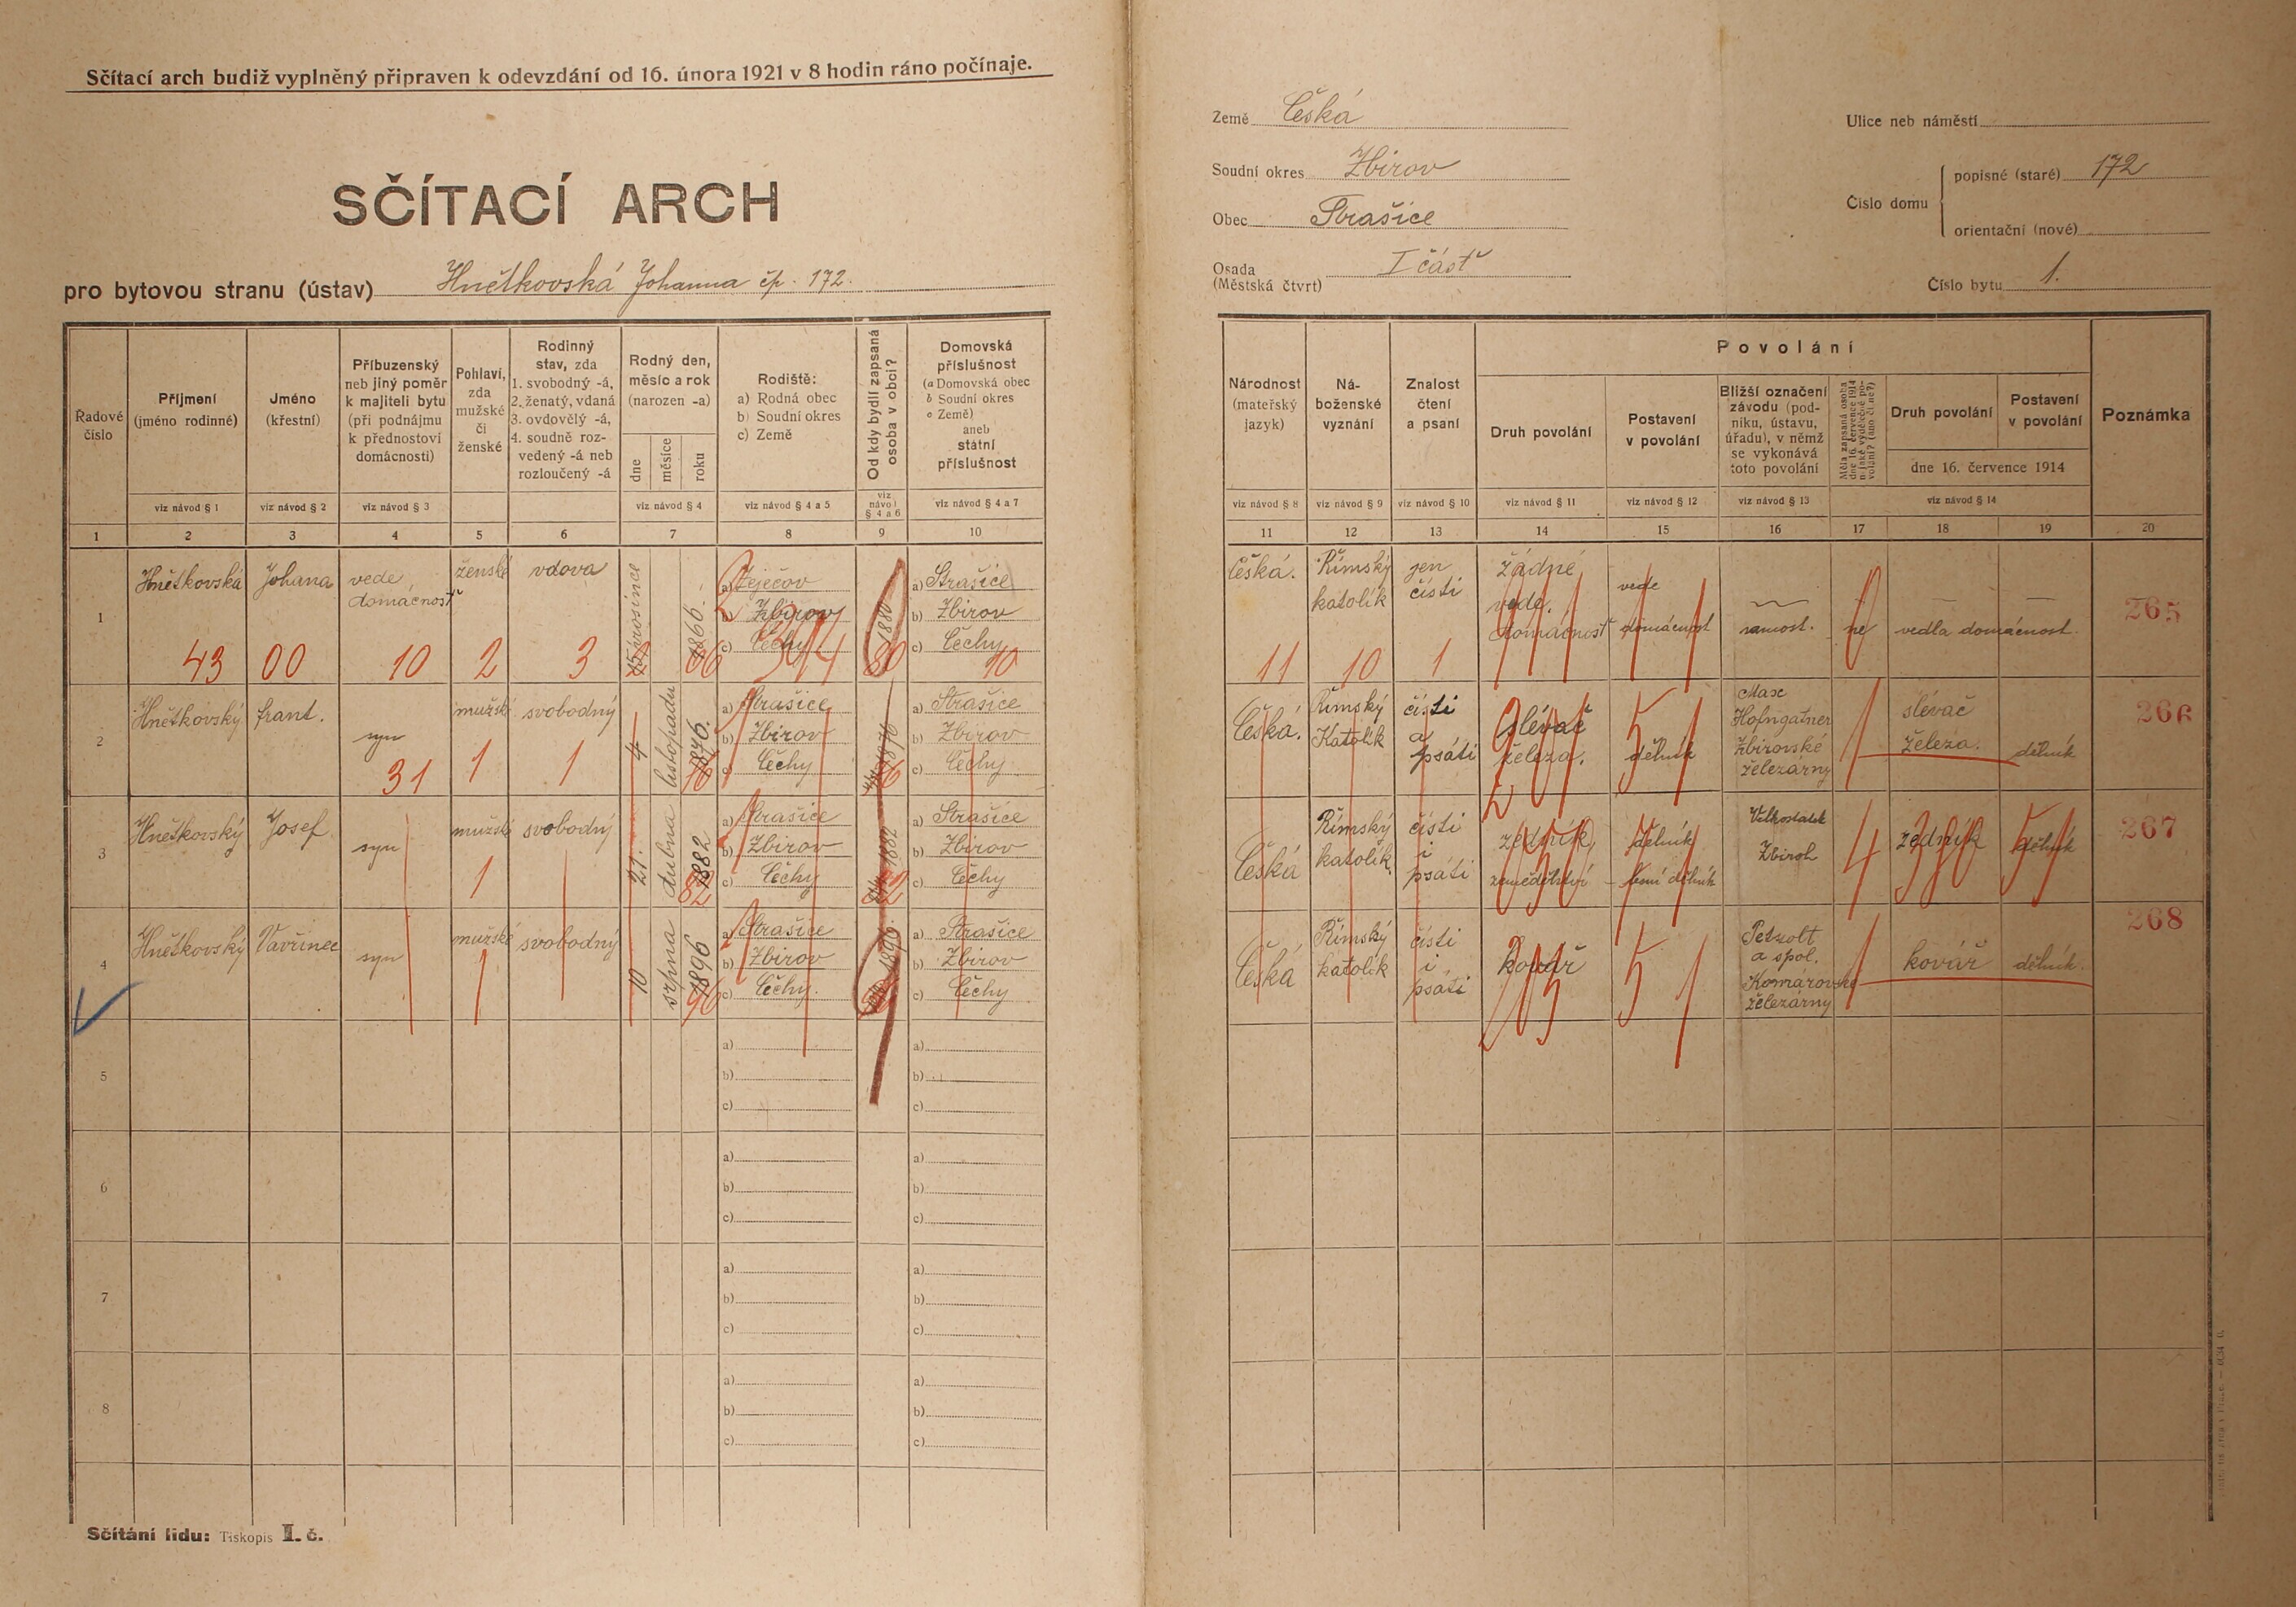 Sčítací arch budiž vyplněný připraven k odevzdání od 16. února 1921 v 8 hodin ráno počínaje.
SČÍTACÍ ARCH
pro bytovou stranu (ústav) Hnětkovská Johanna čp. 172.
Země Česká
Soudní okres Zbirov
Obec Strašice
Osada
(Městská čtvrt) I část
Ulice neb náměstí
Číslo domu
popisné (staré) 172
orientační (nové)
Číslo bytu 1.
Řadové číslo
Příjmení (jméno rodinné)
Jméno (křestní)
Příbuzenský neb jiný poměr k majiteli bytu (při podnájmu k přednostovi domácnosti)
Pohlaví, zda mužské či ženské
Rodinný stav, zda 1. svobodný -á, 2. ženatý, vdaná 3. ovdovělý -á, 4. soudně rozvedený -á neb rozloučený -á
Rodný den, měsíc a rok (narozen -a)
dne měsíce roku
Rodiště: a) Rodná obec b) Soudní okres c) Země
Od kdy bydlí zapsaná osoba v obci?
Domovská příslušnost (a Domovská obec b Soudní okres c Země) aneb státní příslušnost
viz návod § 1 viz návod § 2 viz návod § 3 viz návod § 4 viz návod § 4 a 5 viz návod § 4 a 6 viz návod § 4 a 7
1 2 3 4 5 6 7 8 9 10
Národnost (mateřský jazyk)
Náboženské vyznání
Znalost čtení a psaní
Povolání
Druh povolání
Postavení v povolání
Bližší označení závodu (podniku, ústavu, úřadu), v němž se vykonává toto povolání
Druh povolání
Postavení v povolání
dne 16. července 1914
Poznámka
viz návod § 8 viz návod § 9 viz návod § 10 viz návod § 11 viz návod § 12 viz návod § 13 viz návod § 14
11 12 13 14 15 16 17 18 19 20
1 Hnětkovská Johana vede domácnosť ženské vdova prosince 1866.
a) b) Zbirov c) Čechy
1880
a) Strašice b) Zbirov c) Čechy
43 00 10 2 3 66 80 10
Česká. Římský katolík jen čísti žádné vede domácnosť vede domácnost samost. ne vedla domácnost. 265
11 10 1
2 Hnětkovský frant. syn mužské svobodný 4 listopadu 1876.
a) Strašice b) Zbirov c) Čechy
a) Strašice b) Zbirov c) Čechy
31 1 1
Česká. Římský Katolík čísti a psáti slévač železa. dělník Max Hofngatner Zbirovské železárny 1 slévač železa. dělník 266
3 Hnětkovský Josef syn mužské svobodný 21. dubna 1882
a) Strašice b) Zbirov c) Čechy
a) Strašice b) Zbirov c) Čechy
1 82
Česká Římský katolík čísti i psáti zedník, dělník zemědělství Velkostatek Zbiroh 4 zedník dělník 267
4 Hnětkovský Vavřinec syn mužské svobodný 10 srpna 1896
a) Strašice b) Zbirov c) Čechy.
a) Strašice b) Zbirov c) Čechy
1 96
Česká Římský katolík čísti i psáti kovář 5 1 Petzolt a spol. Komárovské železárny 1 kovář dělník. 268
5
a) b) c)
a) b) c)
6
a) b) c)
a) b) c)
7
a) b) c)
a) b) c)
8
a) b) c)
a) b) c)
Sčítání lidu: Tiskopis I. č.